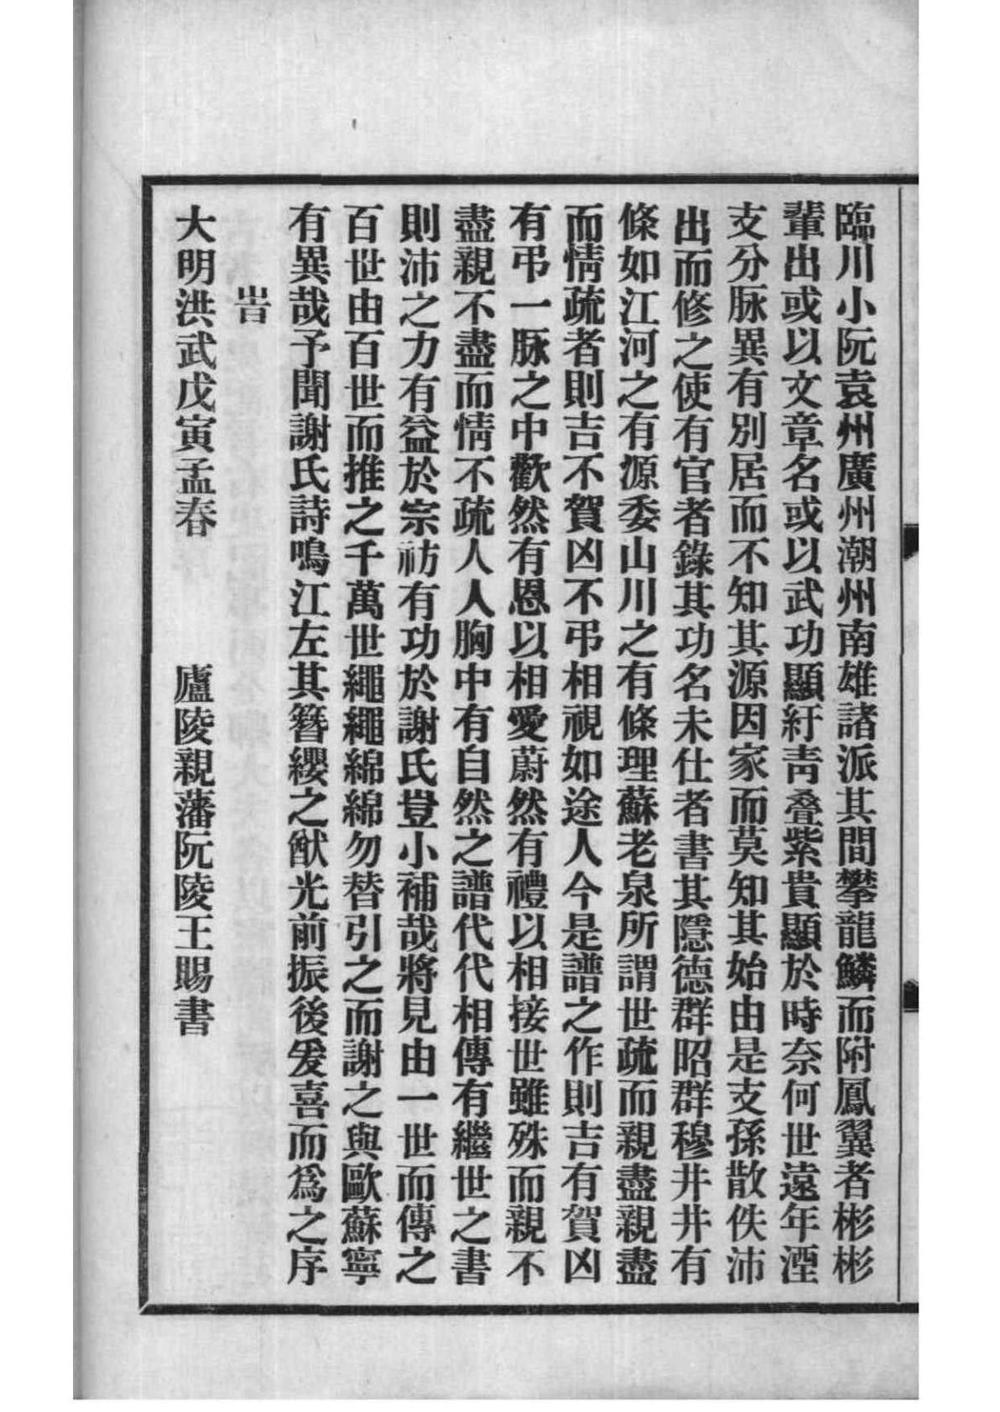 臨川小阮袁州廣州潮州南雄諸派其間攀龍鱗而附鳳翼者彬彬
輩出或以文章名或以武功顯紆青叠紫貴顯於時奈何世遠年湮
支分脉異有別居而不知其源因家而莫知其始由是支孫散佚沛
出而修之使有官者錄其功名未仕者書其隱德群昭群穆井井有
條如江河之有源委山川之有條理蘇老泉所謂世疏而親盡親盡
而情疏者則吉不賀凶不弔相視如途人今是譜之作則吉有賀凶
有弔一脉之中歡然有恩以相愛蔚然有禮以相接世雖殊而親不
盡親不盡而情不疏人人胸中有自然之譜代代相傳有繼世之書
則沛之力有益於宗祊有功於謝氏豈小補哉將見由一世而傳之
百世由百世而推之千萬世繩繩綿綿勿替引之而謝之與歐蘇寧
有異哉予聞謝氏詩鳴江左其簪纓之猷光前振後爰喜而為之序
旹
大明洪武戊寅孟春　廬陵親藩阮陵王賜書